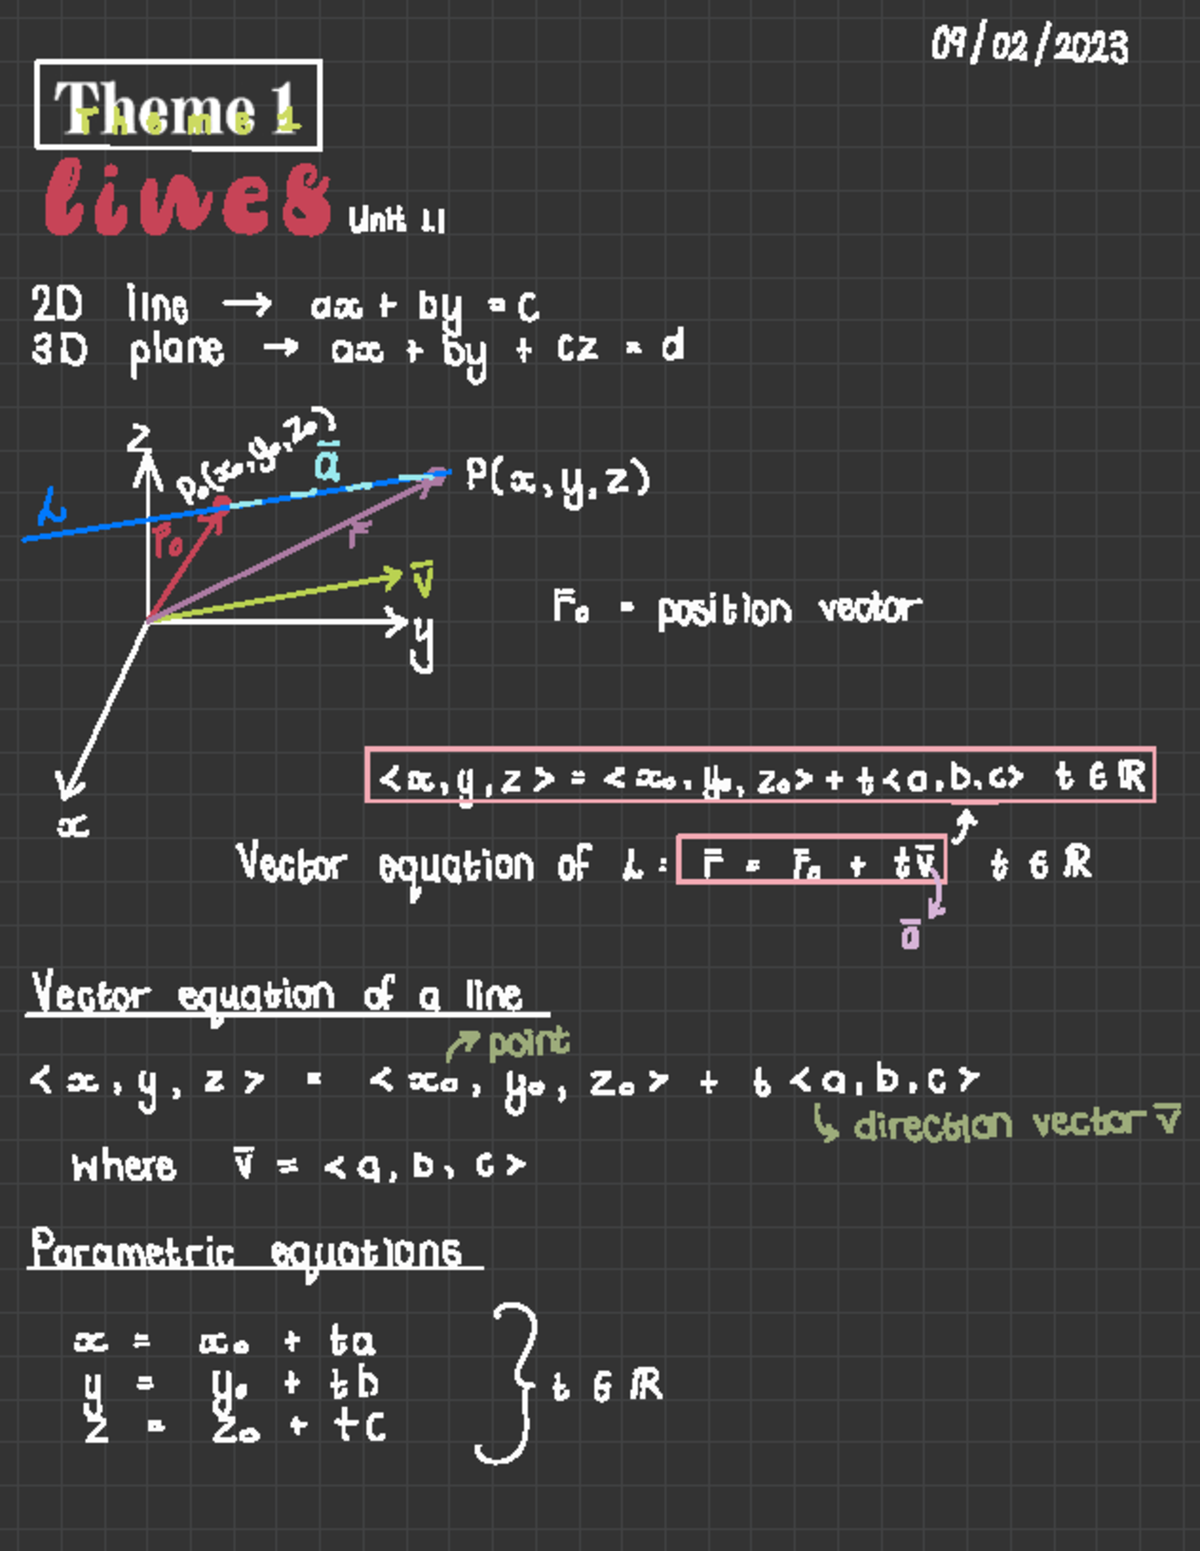 09/02/2023
Theme 1
Theme 1
lines Unit 1.1
2D line → ax + by = c
3D plane → ax + by + cz = d
z
P₀(x₀,y₀,z₀)
a̅
P(x,y,z)
L
r̅₀
r̅
v̅
y
r̅₀ - position vector
x
<x,y,z> = <x₀,y₀,z₀> + t<a,b,c> t ∈ ℝ
Vector equation of L: r̅ = r̅₀ + tv̅ t ∈ ℝ
a̅
Vector equation of a line
↗ point
<x,y,z> = <x₀,y₀,z₀> + t<a,b,c>
↳ direction vector v̅
where v̅ = <a,b,c>
Parametric equations
x = x₀ + ta
y = y₀ + tb } t ∈ ℝ
z = z₀ + tc